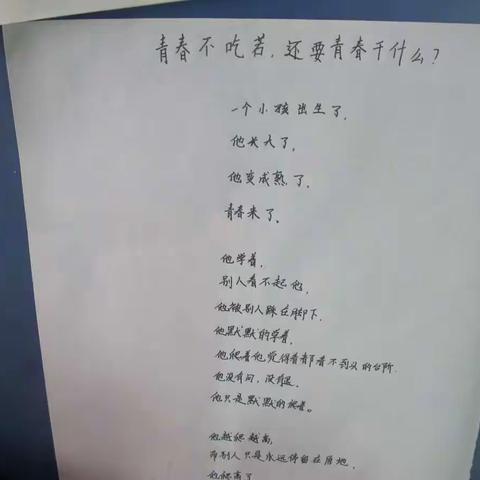 青春不吃苦，还要青春干什么？
一个小孩出生了，
他长大了，
他变成熟了，
青春来了，
他学着，
别人看不起他，
他被别人踩在脚下，
他默默的学着，
他爬着他觉得看都看不到头的台阶，
他没有问，没有
他只是默默的爬着。
他越爬越高，
而别人只是永远停留在原地，
他爬高了